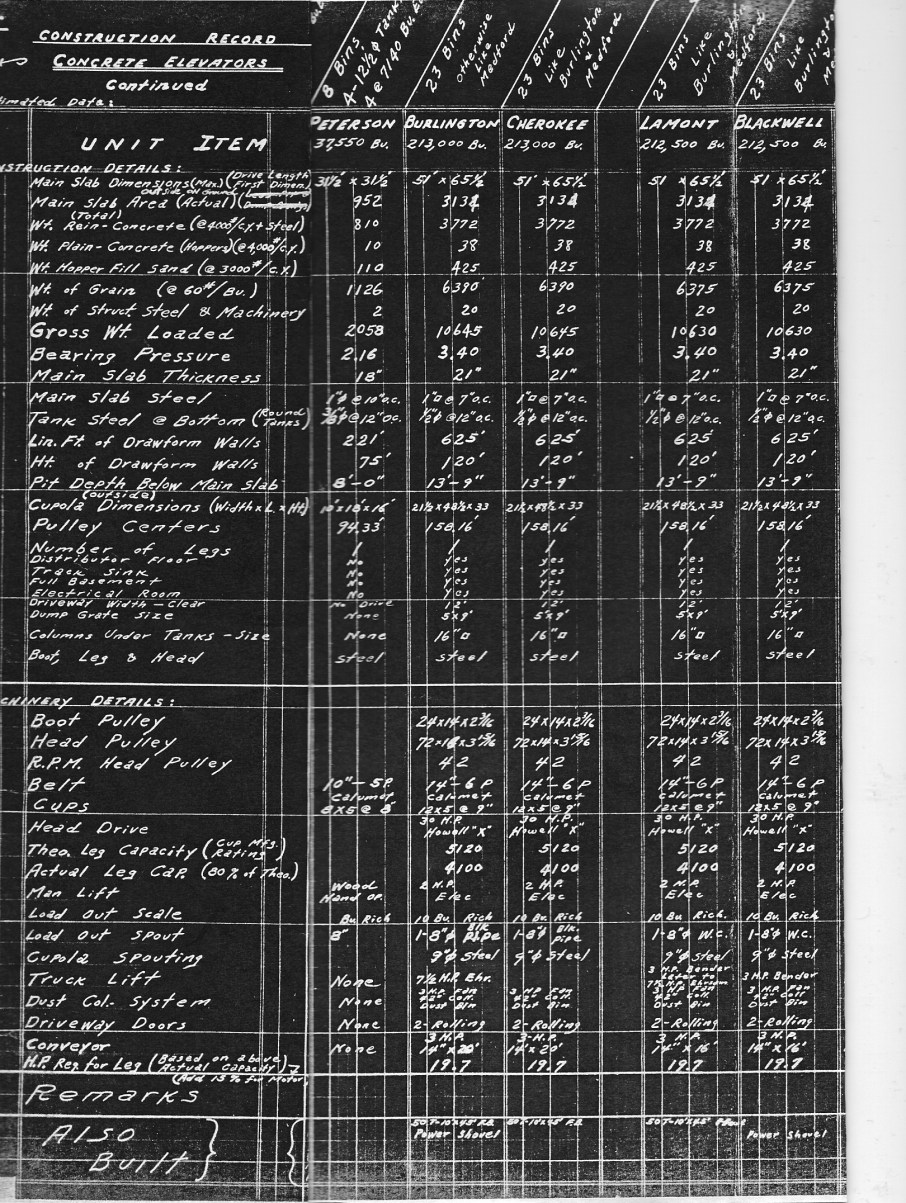 CONSTRUCTION RECORD
CONCRETE ELEVATORS
Continued
8 Bins
4-12½'φ Tank
4 @ 7140 Bu.
23 Bins
otherwise
Like
Medford
23 Bins
Like
Burlington
&
Medford
23 Bins
Like
Burlington
&
Medford
23 Bins
Like
Burlington
&
Data:
UNIT ITEM PETERSON BURLINGTON CHEROKEE LAMONT BLACKWELL
37,550 Bu. 213,000 Bu. 213,000 Bu. 212,500 Bu. 212,500 Bu.
DETAILS:
Main Slab Dimensions (Max.) (Drive Length First Dimen.) 31½' x 31½' 51' x 65½' 51' x 65½' 51 x 65½' 51 x 65½'
outside on Ground
Main Slab Area (Actual) 952 3134 3134 3134 3134
(Total)
Wt. Rein-Concrete (@4000#/c.y.+ Steel) 810 3772 3772 3772 3772
Wt. Plain-Concrete (Hoppers)(@4000#/c.y.) 10 38 38 38 38
Wt. Hopper Fill Sand (@ 3000#/c.y.) 110 425 425 425 425
Wt. of Grain (@ 60#/Bu.) 1126 6390 6390 6375 6375
Wt. of Struct Steel & Machinery 2 20 20 20 20
Gross Wt. Loaded 2058 10645 10645 10630 10630
Bearing Pressure 2.16 3.40 3.40 3.40 3.40
Main Slab Thickness 18" 21" 21" 21" 21"
Main Slab Steel 1"φ @ 10"o.c. 1"▫ @ 7"o.c. 1"▫ @ 7"o.c. 1"▫ @ 7"o.c. 1"▫ @ 7"o.c.
Tank Steel @ Bottom (Round Tanks) φ @ 12"o.c. ½"φ @ 12"o.c. ½"φ @ 12"o.c. ½"φ @ 12"o.c. ½"φ @ 12"o.c.
Lin. Ft. of Drawform Walls 221' 625' 625' 625' 625'
Ht. of Drawform Walls 75' 120' 120' 120' 120'
Pit Depth Below Main Slab 8'-0" 13'-9" 13'-9" 13'-9" 13'-9"
(outside)
Cupola Dimensions (Width x L. x Ht) x 18' x 16' 21½ x 48½ x 33 21½ x 48½ x 33 21½ x 48½ x 33 21½ x 48½ x 33
Pulley Centers 94.33' 158.16' 158.16' 158.16' 158.16'
Number of Legs 1 1 1 1 1
Distributor Floor No yes yes yes yes
Track Sink No yes yes yes yes
Full Basement No yes yes yes yes
Electrical Room No yes yes yes yes
Driveway Width - Clear No Drive 12' 12' 12' 12'
Dump Grate Size None 5'x9' 5'x9' 5'x9' 5'x9'
Columns Under Tanks - Size None 16"▫ 16"▫ 16"▫ 16"▫
Boot, Leg & Head steel steel steel steel steel
DETAILS:
Boot Pulley 24x14x2 3/16 24x14x2 3/16 24x14x2 3/16 24x14x2 3/16
Head Pulley 72x14x3 15/16 72x14x3 15/16 72x14x3 15/16 72x14x3 15/16
R.P.M. Head Pulley 42 42 42 42
Belt 10"-5P. 14"-6 P 14"-6 P 14"-6 P 14"-6 P
Calumet Calumet Calumet Calumet Calumet
Cups 8x5 @ 8" 12x5 @ 9" 12x5 @ 9" 12x5 @ 9" 12x5 @ 9"
30 H.P. 30 H.P. 30 H.P. 30 H.P.
Head Drive Howell "X" Howell "X" Howell "X" Howell "X"
Theo. Leg Capacity (Cup Mfg. Rating) 5120 5120 5120 5120
Actual Leg Cap. (80% of Theo.) 4100 4100 4100 4100
Man Lift Wood Hand op. 2 H.P. Elec 2 H.P. Elec 2 H.P. Elec 2 H.P. Elec
Load Out Scale Bu. Rich 10 Bu. Rich 10 Bu. Rich 10 Bu. Rich. 10 Bu. Rich
Load Out Spout 8" 1-8"φ Blk pipe 1-8"φ Blk. pipe 1-8"φ W.C. 1-8"φ W.C.
Cupola Spouting 9"φ Steel 9"φ Steel 9"φ Steel 9"φ Steel
Truck Lift None 7½ H.P. Ehr. 3 H.P. Bender Later to 7½ H.P. Ehrsam 3 H.P. Bender
Dust Col. System None 3 H.P. Fan 42" Coll. Dust Bin 3 H.P. Fan 42" Coll. Dust Bin 3 H.P. Fan 42" Coll. Dust Bin 3 H.P. Fan 42" Coll. Dust Bin
Driveway Doors None 2-Rolling 2-Rolling 2-Rolling 2-Rolling
3 H.P. 3-H.P. 3 H.P. 3 H.P.
Conveyor None 14" x 20' 14" x 20' 14" x 16' 14" x 16'
H.P. Req. for Leg (Based on above Actual Capacity) 19.7 19.7 19.7 19.7
(Add 15% for Motor)
Remarks
50T-10'x45' 50T-10'x45' 50T-10'x45'
Power Shovel Power Shovel
Also
Built